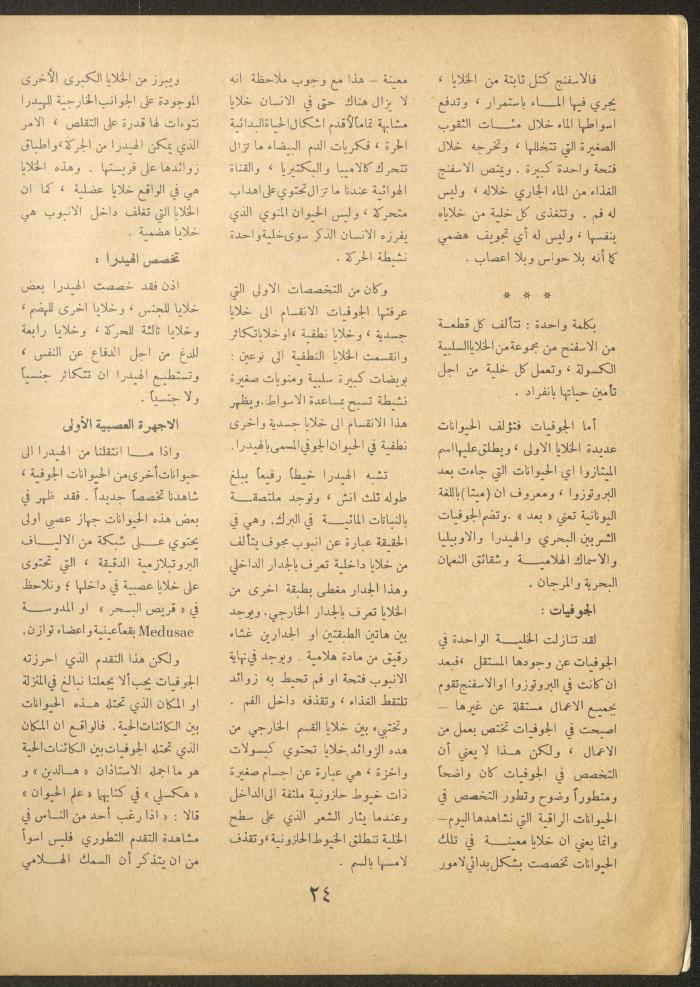 فالاسفنج كتل ثابتة من الخلايا ،
يجري فيها المـاء باستمرار ، وتدفع
اسواطها الماء خلال مئـات الثقوب
الصغيرة التي تتخللها ، وتخرجه خلال
فتحة واحدة كبيرة . ويمتص الاسفنج
الغذاء من الماء الجاري خلاله ، وليس
له فم . وتتغذى كل خلية من خلاياه
بنفسها ، وليس له أي تجويف هضمي
كما أنه بلا حواس وبلا اعصاب .
* * *
بكلمة واحدة : تتألف كل قطعـة
من الاسفنج من مجموعة من الخلايا السلبية
الكسولة ، وتعمل كل خلية من اجل
تأمين حياتها بانفراد .
أما الجوفيات فتؤلف الحيوانات
عديدة الخلايا الاولى ، ويطلق عليها اسم
الميتازوا اي الحيوانات التي جاءت بعد
البروتوزوا ، ومعروف ان (ميتا) باللغة
اليونانية تعني « بعد » . وتضم الجوفيات
الشربين البحري والهيدرا والاوبيليا
والاسماك الهلاميـة وشقائق النعمان
البحرية والمرجان .
الجوفيات :
لقد تنازلت الخليـة الواحدة في
الجوفيات عن وجودها المستقل ، فبعد
ان كانت في البروتوزوا او الاسفنج تقوم
بجميع الاعمال مستقلة عن غيرها –
اصبحت في الجوفيات تختص بعمل من
الاعمال ، ولكن هـذا لا يعني أن
التخصص في الجوفيات كان واضحاً
ومتطوراً وضوح وتطور التخصص في
الحيوانات الراقية التي نشاهدها اليوم –
وانما يعني ان خلايا معينـة في تلك
الحيوانات تخصصت بشكل بدائي لامور
معينة – هذا مع وجوب ملاحظة انه
لا يزال هناك حتى في الانسان خلايا
مشابهة تماماً لأقدم اشكال الحياة البدائية
الحرة ، فكريات الدم البيضاء ما تزال
تتحرك كالاميبا والبكتيريا ، والقناة
الهوائية عندنا ما تزال تحتوي على اهداب
متحركة ، وليس الحيوان المنوي الذي
يفرزه الانسان الذكر سوى خلية واحدة
نشيطة الحركة .
وكان من التخصصات الاولى التي
عرفتها الجوفيات الانقسام الى خلايا
جسدية ، وخلايا نطفية ، او خلايا تكاثر
وانقسمت الخلايا النطفية الى نوعين :
بويضات كبيرة سلبية ومنويات صغيرة
نشيطة تسبح بمساعدة الاسواط . ويظهر
هذا الانقسام الى خلايا جسدية واخرى
نطفية في الحيوان الجوفي المسمى بالهيدرا .
تشبه الهيدرا خيطاً رفيعاً يبلغ
طوله ثلث انش ، وتوجد ملتصقـة
بالنباتات المائيـة في البرك . وهي في
الحقيقة عبارة عن انبوب مجوف يتألف
من خلايا داخلية تعرف بالجدار الداخلي
وهذا الجدار مغطى بطبقة اخرى من
الخلايا تعرف بالجدار الخارجي . ويوجد
بين هاتين الطبقتين او الجدارين غشاء
رقيق من مادة هلامية . ويوجد في نهاية
الانبوب فتحة او فم تحيط به زوائد
تلتقط الغذاء ، وتقذفه داخل الفم .
وتختبيء بين خلايا القسم الخارجي من
هده الزوائد خلايا تحتوي كبسولات
واخزة ، هي عبارة عن اجسام صغيرة
ذات خيوط حلزونية ملتفة الى الداخل
وعندما يثار الشعر الذي على سطح
الخلية تنطلق الخيوط الحلزونية ، وتقذف
لامسها بالسم .
ويبرز من الخلايا الكبرى الأخرى
الموجودة على الجوانب الخارجية للهيدرا
نتوءات لها قدرة على التقلص ، الامر
الذي يمكن الهيدرا من الحركة ، واطباق
زوائدها على فريستها . وهذه الخلايا
هي في الواقع خلايا عضلية ، كما ان
الخلايا التي تغلف داخل الانبوب هي
خلايا هضمية .
تخصص الهيدرا :
اذن فقد خصصت الهيدرا بعض
خلايا للجنس ، وخلايا اخرى للهضم ،
وخلايا ثالثة للحركة ، وخلايا رابعة
للدغ من اجل الدفاع عن النفس ،
وتستطيع الهيدرا ان تتكاثر جنسياً
ولا جنسياً .
الاجهزة العصبية الأولى
واذا مـا انتقلنا من الهيدرا الى
حيوانات أخرى من الحيوانات الجوفية ،
شاهدنا تخصصاً جديداً . فقد ظهر في
بعض هذه الحيوانات جهاز عصبي اولي
يحتوي عـلى شبكة من الاليـاف
البروتبلازمية الدقيقة ، التي تحتوى
على خلايا عصبية في داخلها ؛ ونلاحظ
في « قريص البـحر » او المدوسـة
Medusae بقعاً عينية واعضاء توازن .
ولكن هذا التقدم الذي احرزته
الجوفيات يجب ألا يجعلنا نبالغ في المنزلة
او المكان الذي تحتله هـذه الحيوانات
بين الكائنات الحية . فالواقع ان المكان
الذي تحتله الجوفيات بين الكائنات الحية
هو ما اجمله الاستاذان « هـالدين » و
« هكسلي » في كتابهما « علم الحيوان »
قالا : « اذا رغب أحد من النـاس في
مشاهدة التقدم التطوري فليس اسوأ
من ان يتذكر أن السمك الهـلامي
٢٤